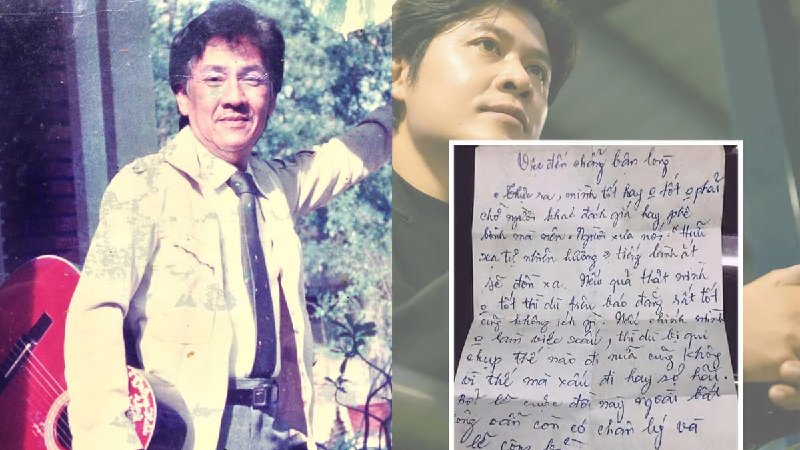 Việc đến chẳng bận lòng
• Thực ra, mình tốt hay o tốt o phải
chờ người khác đánh giá hay phê
bình mà nên. Người xưa nói: "Hữu
xạ tự nhiên hương" tiếng lành ắt
sẽ đồn xa. Nếu quả thật mình
o tốt thì dù trên báo đăng rất tốt
cũng không ích gì. Nếu chính mình
o làm việc xấu, thì dù bị qui
chụp thế nào đi nữa cũng không
vì thế mà xấu đi hay sợ hãi.
Bởi lẽ cuộc đời này ngoài bất
công vẫn còn có chân lý và
lẽ công